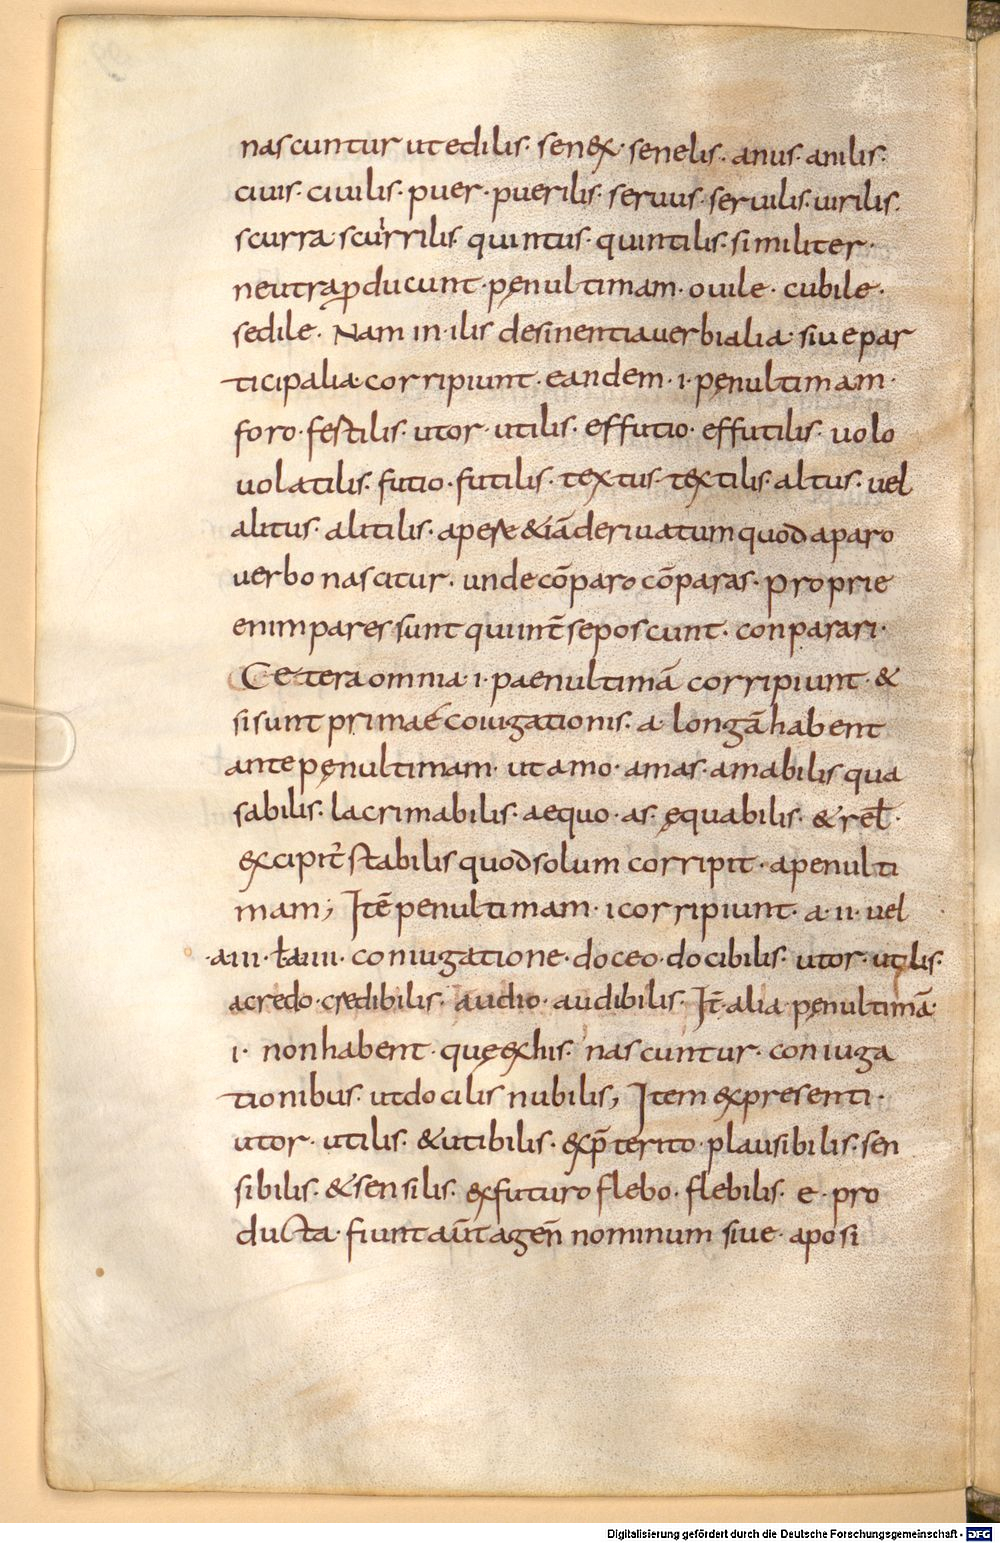 nascuntur ut edilis· senex· senelis· anus· anilis·
ciuis· ciuilis· puer· puerilis· seruus· seruilis· uirilis·
scurra· scurrilis· quintus· quintilis· similiter·
neutra ꝓducunt· pęnultimam· ouile· cubile·
sedile· Nam in· ilis desinentia uerbialia· siue par
ticipalia corripiunt· eandem· i· pęnultimam·
foro· festilis· utor· utilis· effutio· effutilis· uolo
uolatilis· futio· futilis· textus· textilis· altus· uel
alitus· alitilis· apese & iā deriuatum quod a paro
uerbo nascitur· unde cōparo cōparas· proprie
enim pares sunt qui int̄ se poscunt· conparari·
Cetera omnia· i· paenultimā corripiunt· &
si sunt primae coiugationis· a· longā habent
ante pęnultimam· ut amo· amas· amabilis qua
sabilis· lacrimabilis· aequo· as· ęquabilis· & rel̄·
excipit̄ stabilis quod solum corripit· a penulti
mam; Itē penultimam· i corripiunt· a· ii· uel
·a iii· ł a iiii· coniugatione· doceo· docibilis· utor· utilis·
a credo· credibilis· audio· audibilis· It̄· alia pęnultimā·
i· non habent· quę ex his· nascuntur· coniuga
tionibus· ut docilis nubilis; Item ex presenti·
utor· utilis· & utibilis· ex p̄terito· plausibilis· sen
sibilis· & sensilis· ex futuro flebo· flebilis· e· pro
ducta· fiunt aūt a geñ nominum siue· a posi
Digitalisierung gefördert durch die Deutsche Forschungsgemeinschaft - DFG